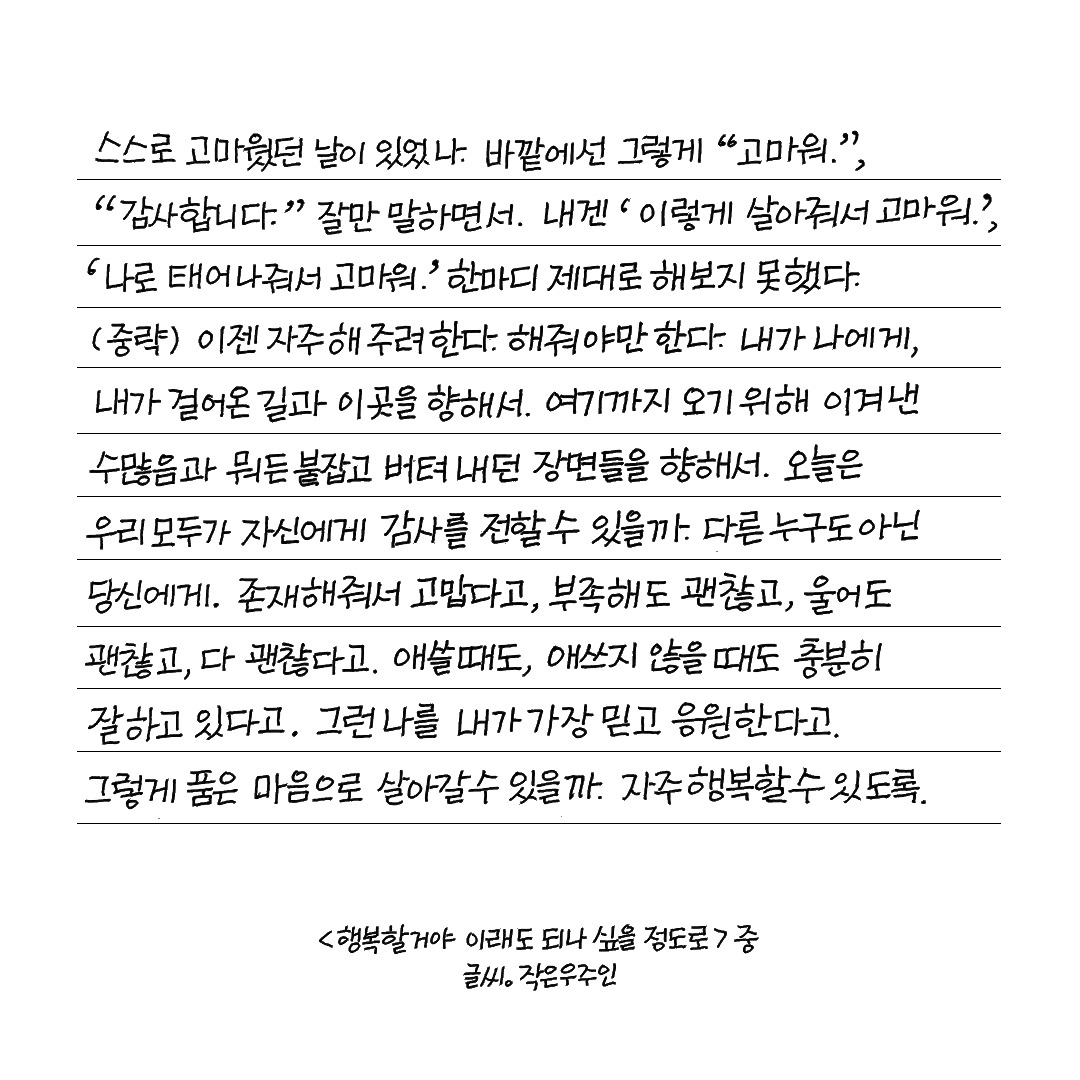 스스로 고마웠던 날이 있었나. 바깥에선 그렇게 “고마워.”,
“감사합니다.” 잘만 말하면서. 내겐 ‘이렇게 살아줘서 고마워.’,
‘나로 태어나줘서 고마워.’ 한마디 제대로 해보지 못했다.
(중략) 이젠 자주 해 주려 한다. 해줘야만 한다. 내가 나에게,
내가 걸어온 길과 이곳을 향해서. 여기까지 오기 위해 이겨 낸
수많음과 뭐든 붙잡고 버텨 내던 장면들을 향해서. 오늘은
우리 모두가 자신에게 감사를 전할 수 있을까. 다른 누구도 아닌
당신에게. 존재해줘서 고맙다고, 부족해도 괜찮고, 울어도
괜찮고, 다 괜찮다고. 애쓸 때도, 애쓰지 않을 때도 충분히
잘하고 있다고. 그런 나를 내가 가장 믿고 응원한다고.
그렇게 품은 마음으로 살아갈 수 있을까. 자주 행복할 수 있도록.
<행복할거야 이래도 되나 싶을 정도로> 중
글씨. 작은우주인